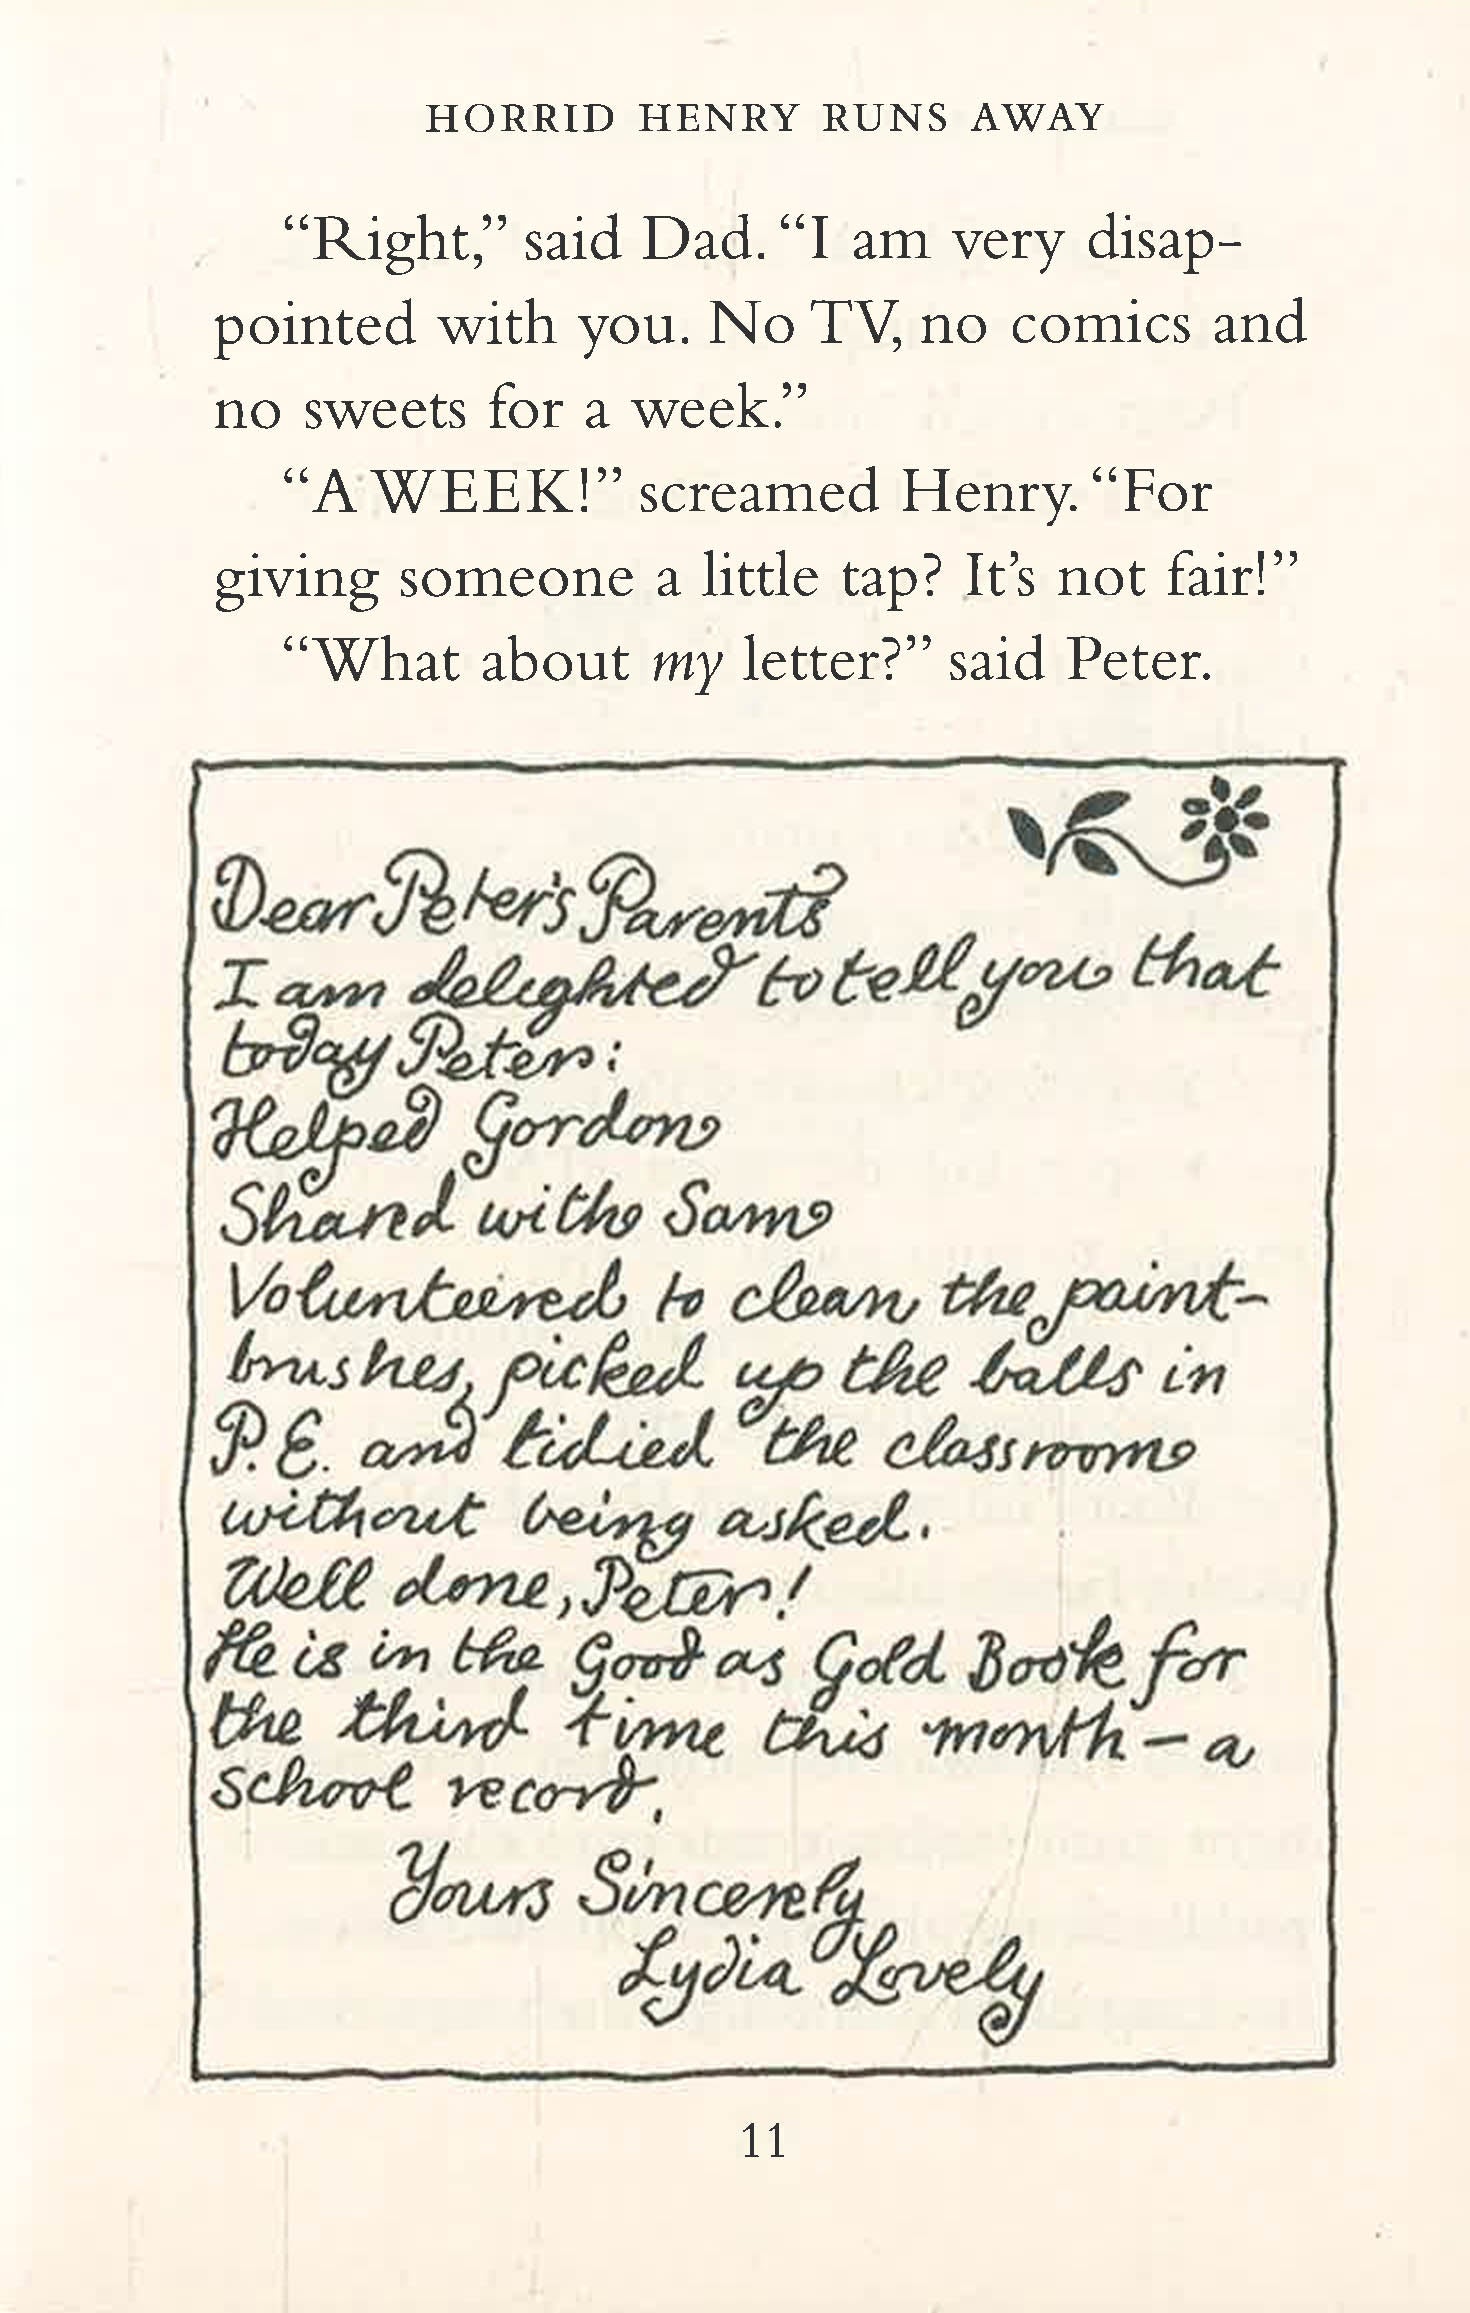 HORRID HENRY RUNS AWAY
“Right,” said Dad. “I am very disap-
pointed with you. No TV, no comics and
no sweets for a week.”
“A WEEK!” screamed Henry. “For
giving someone a little tap? It’s not fair!”
“What about my letter?” said Peter.
Dear Peter's Parents
I am delighted to tell you that
today Peter:
Helped Gordon
Shared with Sam
Volunteered to clean the paint-
brushes, picked up the balls in
P.E. and tidied the classroom
without being asked.
Well done, Peter!
He is in the Good as Gold Book for
the third time this month – a
school record.
Yours Sincerely
Lydia Lovely
11